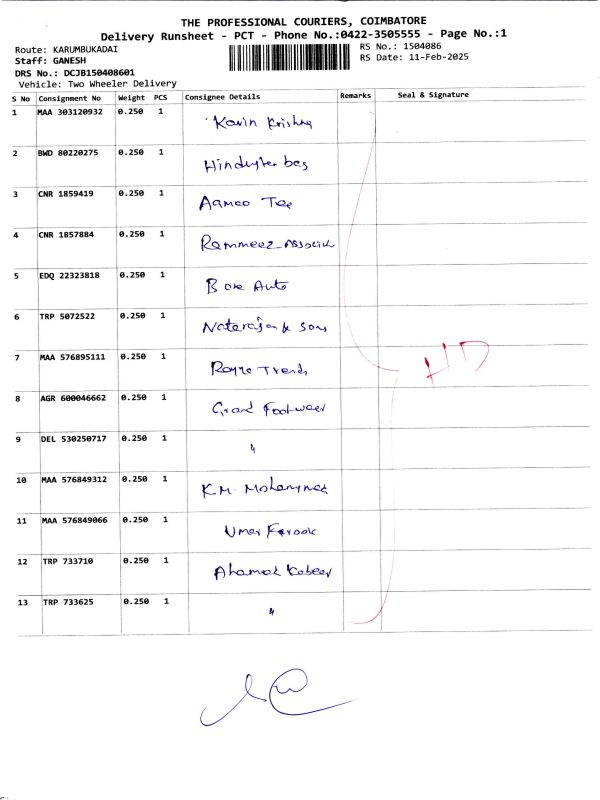 THE PROFESSIONAL COURIERS, COIMBATORE
Delivery Runsheet - PCT - Phone No.:0422-3505555 - Page No.:1
Route: KARUMBUKADAI RS No.: 1504086
Staff: GANESH RS Date: 11-Feb-2025
DRS No.: DCJB150408601
Vehicle: Two Wheeler Delivery
S No Consignment No Weight PCS Consignee Details Remarks Seal & Signature
1 MAA 303120932 0.250 1 Kavin Krishna
2 BWD 80220275 0.250 1
3 CNR 1859419 0.250 1 Aamoo Tex
4 CNR 1857884 0.250 1 Rammeez Associ
5 EDQ 22323818 0.250 1 B one Auto
6 TRP 5072522 0.250 1 Natarajan & Sons
7 MAA 576895111 0.250 1 Trends
HD
8 AGR 600046662 0.250 1 Grand Footwear
9 DEL 530250717 0.250 1 "
10 MAA 576849312 0.250 1 K.M. Mohammed
11 MAA 576849066 0.250 1 Umar Farook
12 TRP 733710 0.250 1 Ahamed Kabeer
13 TRP 733625 0.250 1 "